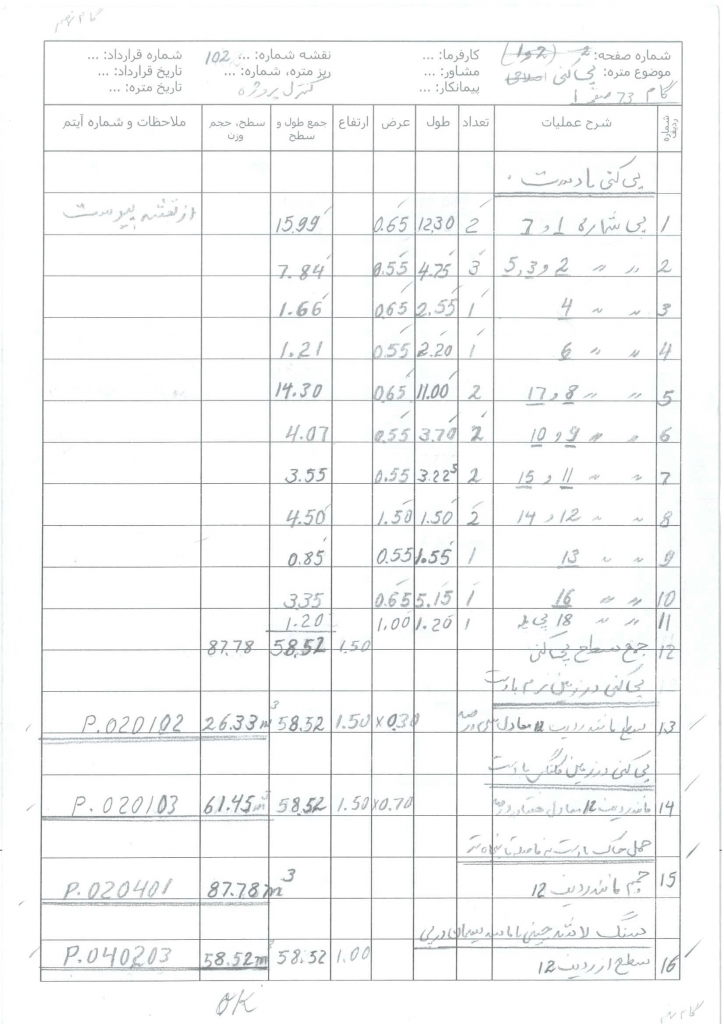 گام نهم
شماره صفحه: 2 (1و2)
کارفرما: ...
نقشه شماره: ... 102
شماره قرارداد: ...
موضوع متره: پی کنی
مشاور: ...
ریز متره، شماره: ...
تاریخ قرارداد: ...
گام 73 صفـ 1
پیمانکار: ...
کنترل پروژه
تاریخ متره: ...
شماره ردیف | شرح عملیات | تعداد | طول | عرض | ارتفاع | جمع طول و سطح | سطح، حجم وزن | ملاحظات و شماره آیتم
پی کنی با دست.
1 پی شماره 1 و 7 2 12.30 0.65 15.99 از نقشه پیوست
2 " " 2 و 3 و 5 3 4.75 0.55 7.84
3 " " 4 1 2.55 0.65 1.66
4 " " 6 1 2.20 0.55 1.21
5 " " 8 و 17 2 11.00 0.65 14.30
6 " " 9 و 10 2 3.70 0.55 4.07
7 " " 11 و 15 2 3.225 0.55 3.55
8 " " 12 و 14 2 1.50 1.50 4.50
9 " " 13 1 1.55 0.55 0.85
10 " " 16 1 5.15 0.65 3.35
11 " " 18 پی پله 1 1.20 1.00 1.20
12 جمع سطح پی کنی 1.50 58.52 87.78
پی کنی در زمین نرم با دست
13 سطح مانند ردیف 12 معادل سی درصد 1.50×0.30 58.52 26.33 m3 P.020102
پی کنی در زمین کلنگی با دست
14 مانند ردیف 12 معادل هفتاد درصد 1.50×0.70 58.52 61.45 m3 P.020103
حمل خاک با دست به فاصله تا پنجاه متر
15 حجم مانند ردیف 12 87.78 m3 P.020401
سنگ لاشه چینی با ماسه سیمان در پی
16 سطح از ردیف 12 1.00 58.52 58.52 m3 P.040203
OK